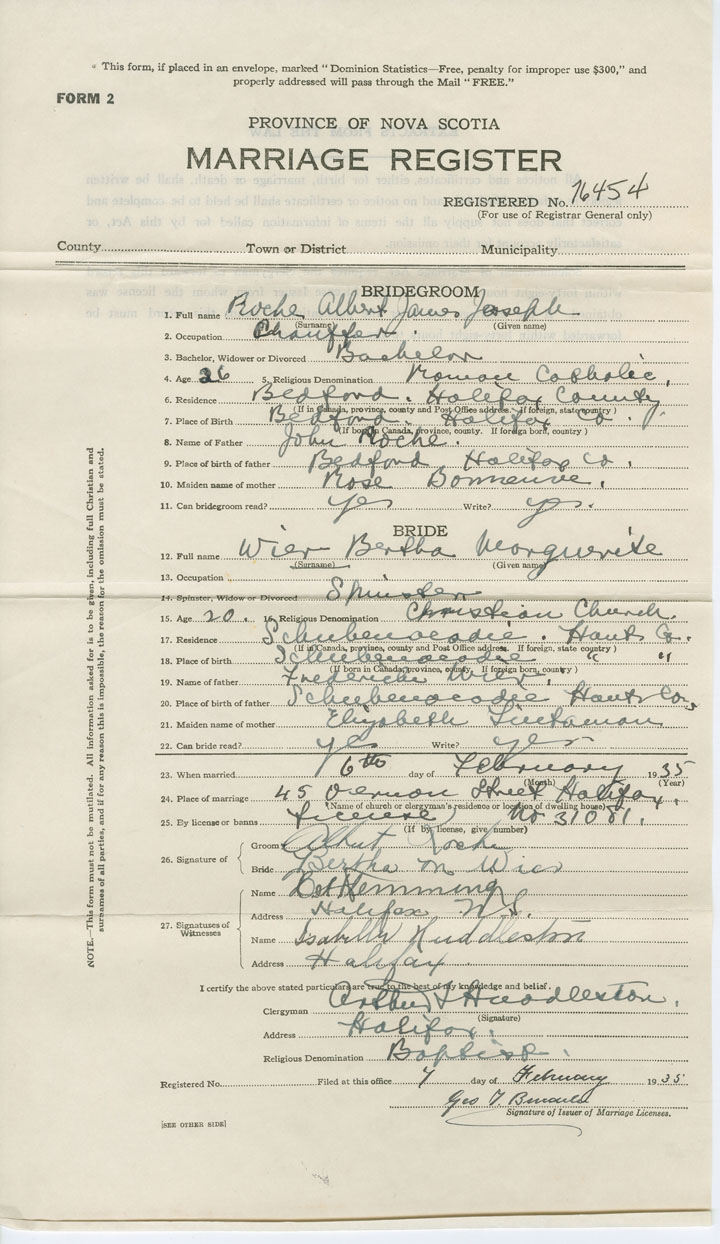 " This form, if placed in an envelope, marked " Dominion Statistics—Free, penalty for improper use $300," and
properly addressed will pass through the Mail " FREE."
FORM 2
PROVINCE OF NOVA SCOTIA
MARRIAGE REGISTER
REGISTERED No. 76454
(For use of Registrar General only)
County Town or District Municipality
BRIDEGROOM
1. Full name Roche Albert James Joseph
(Surname) (Given name)
2. Occupation Chauffer.
3. Bachelor, Widower or Divorced Bachelor
4. Age 26 5. Religious Denomination Roman Catholic,
6. Residence Bedford. Halifax County
(If in Canada, province, county and Post Office address. If foreign, state country )
7. Place of Birth Bedford. Halifax Co.
(If born in Canada, province, county. If foreign born, country )
8. Name of Father John Roche.
9. Place of birth of father Bedford Halifax Co.
10. Maiden name of mother Rose
11. Can bridegroom read? yes Write? yes.
BRIDE
12. Full name Wier Bertha Marguerite
(Surname) (Given name)
13. Occupation
14. Spinster, Widow or Divorced Spinster
15. Age 20. 16. Religious Denomination Christian Church.
17. Residence Schubenacadie. Hants Co.
(If in Canada, province, county and Post Office address. If foreign, state country )
18. Place of birth Schubenacadie " "
(If born in Canada, province, county, If foreign born, country )
19. Name of father Frederick Wier.
20. Place of birth of father Schubenacadie Hants Co,
21. Maiden name of mother Elizabeth
22. Can bride read? yes Write? yes
23. When married 6th day of February 1935
(Month) (Year)
24. Place of marriage 45 Vernon Street Halifax,
(Name of church or clergyman's residence or location of dwelling house)
25. By license or banns License) No 31081.
(If by license, give number)
26. Signature of
Groom Albert Roche
Bride Bertha M Wier
27. Signatures of Witnesses
Name Hemming
Address Halifax N.S.
Name Isabella Huddleston
Address Halifax
I certify the above stated particulars are true to the best of my knowledge and belief.
Clergyman Arthur J Huddleston.
(Signature)
Address Halifax.
Religious Denomination Baptist.
Registered No. Filed at this office 7 day of February 1935
Geo
Signature of Issuer of Marriage Licenses.
[SEE OTHER SIDE]
NOTE.—This form must not be mutilated. All information asked for is to be given, including full Christian and
surnames of all parties, and if for any reason this is impossible, the reason for the omission must be stated.